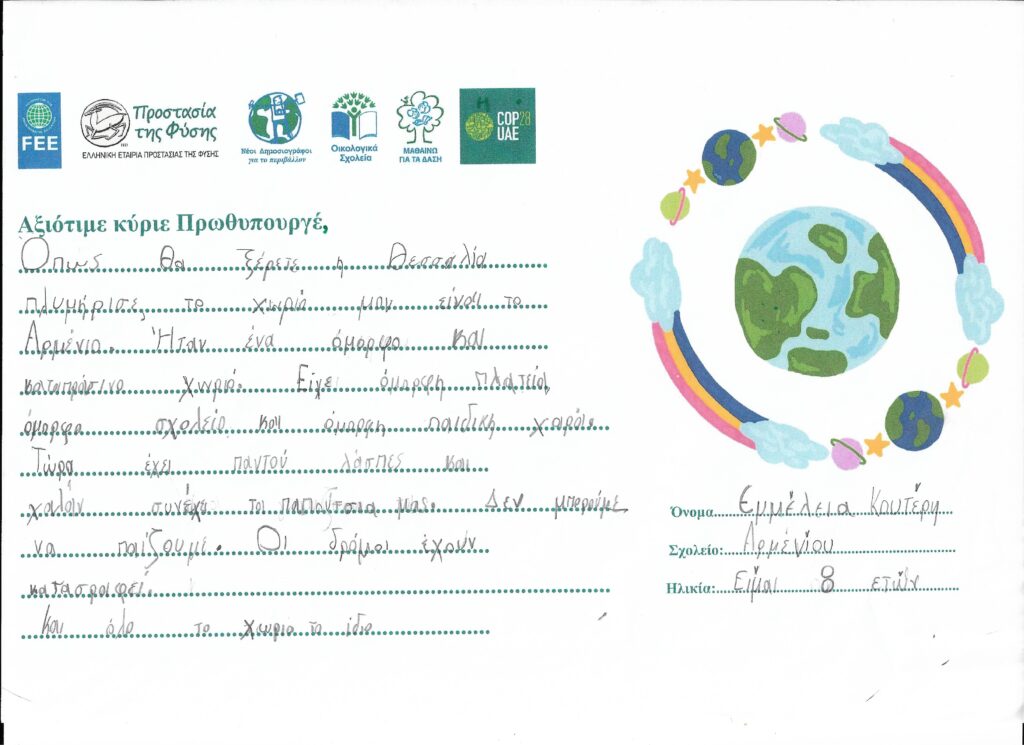 FEE
Προστασία
της Φύσης
ΕΛΛΗΝΙΚΗ ΕΤΑΙΡΙΑ ΠΡΟΣΤΑΣΙΑΣ ΤΗΣ ΦΥΣΗΣ
Νέοι Δημοσιογράφοι
για το περιβάλλον
Οικολογικά
Σχολεία
ΜΑΘΑΙΝΩ
ΓΙΑ ΤΑ ΔΑΣΗ
COP28
UAE
Αξιότιμε κύριε Πρωθυπουργέ,
Όπως θα ξέρετε η Θεσσαλία
πλυμήρισε, το χωριό μου είναι το
Αρμένιο. Ήταν ένα όμορφο και
καταπράσινο χωριό. Είχε όμορφη πλατεία,
όμορφο σχολείο και όμορφη παιδική χαρά.
Τώρα έχει παντού λάσπες και
χαλάν συνέχε τα παπούτσια μας. Δεν μπορούμε
να παίζουμε. Οι δρόμοι έχουν
καταστραφεί.
Και όλο το χωριο το ίδιο
Όνομα Εμμέλεια Κουτέρη
Σχολείο: Αρμενίου
Ηλικία: Είμαι 8 ετών